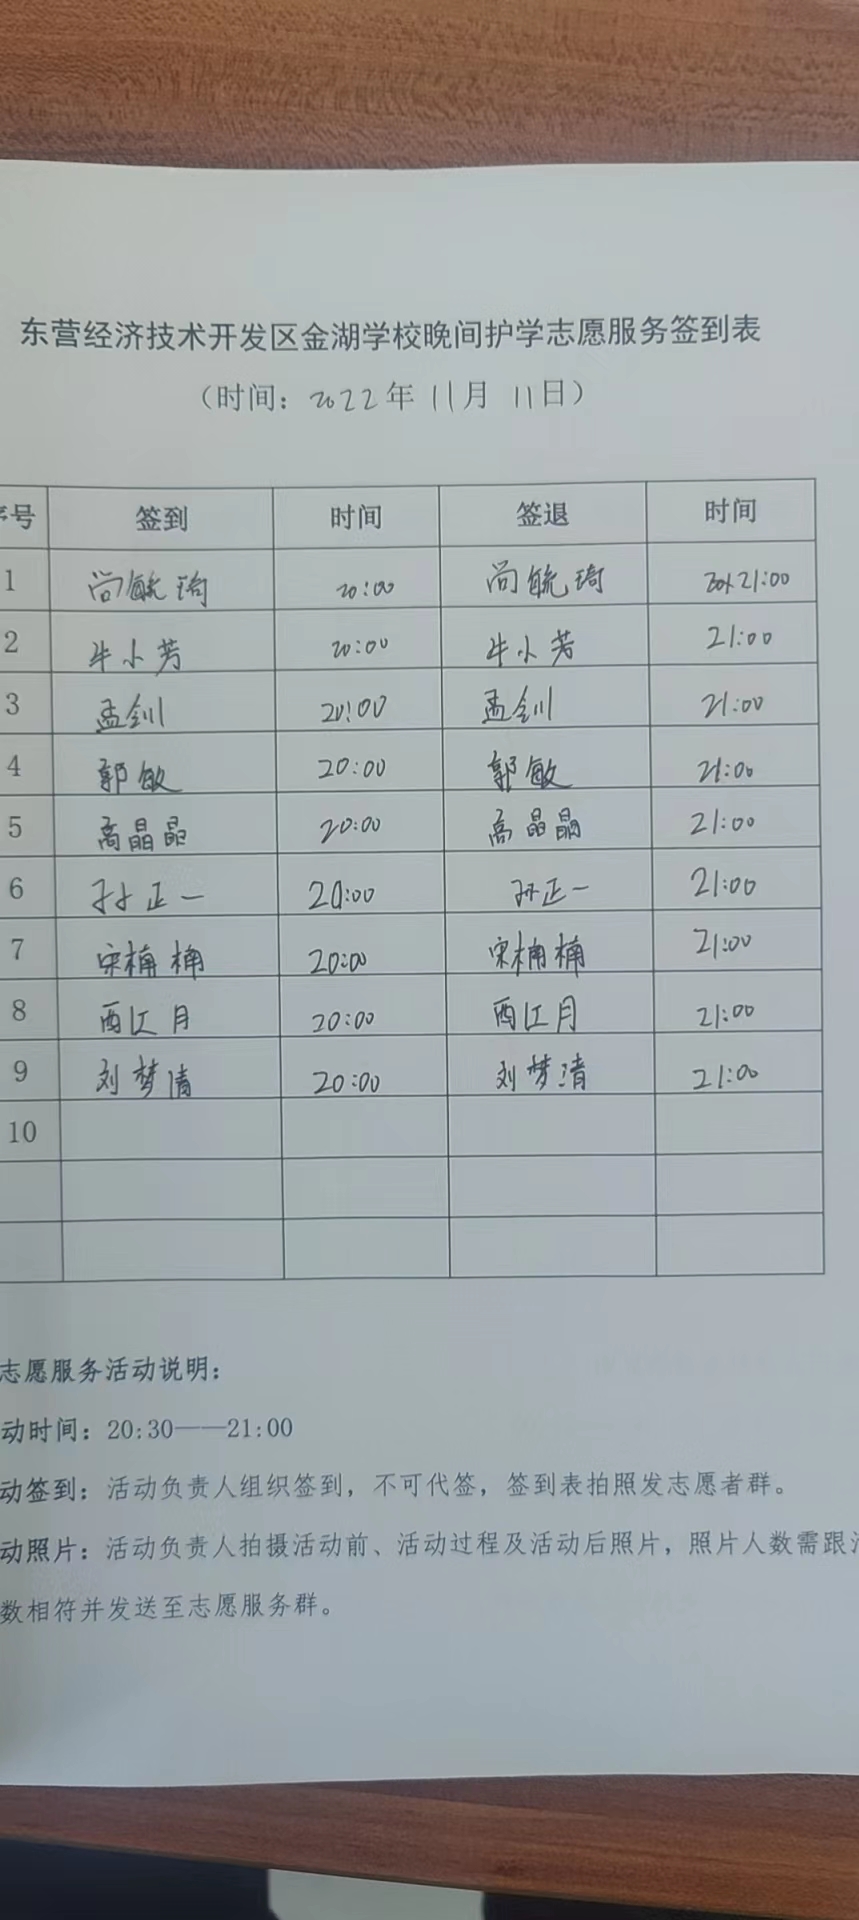 东营经济技术开发区金湖学校晚间护学志愿服务签到表
（时间：2022年 11月 11日）
序号 签到 时间 签退 时间
1 尚毓琦 20:00 尚毓琦 21:00
2 牛小芳 20:00 牛小芳 21:00
3 孟钊 20:00 孟钊 21:00
4 郭敏 20:00 郭敏 21:00
5 高晶晶 20:00 高晶晶 21:00
6 孙正一 20:00 孙正一 21:00
7 宋楠楠 20:00 宋楠楠 21:00
8 西江月 20:00 西江月 21:00
9 刘梦清 20:00 刘梦清 21:00
10
志愿服务活动说明：
动时间：20:30——21:00
动签到：活动负责人组织签到，不可代签，签到表拍照发志愿者群。
动照片：活动负责人拍摄活动前、活动过程及活动后照片，照片人数需跟
数相符并发送至志愿服务群。